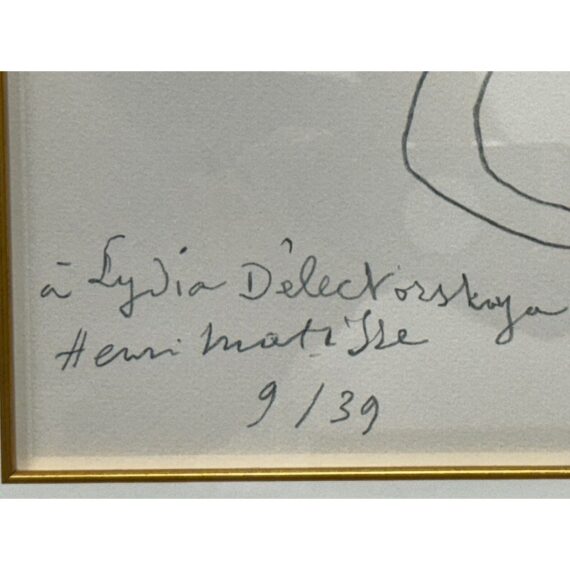 à Lydia Délectorskaya
Henri Matisse
9/39